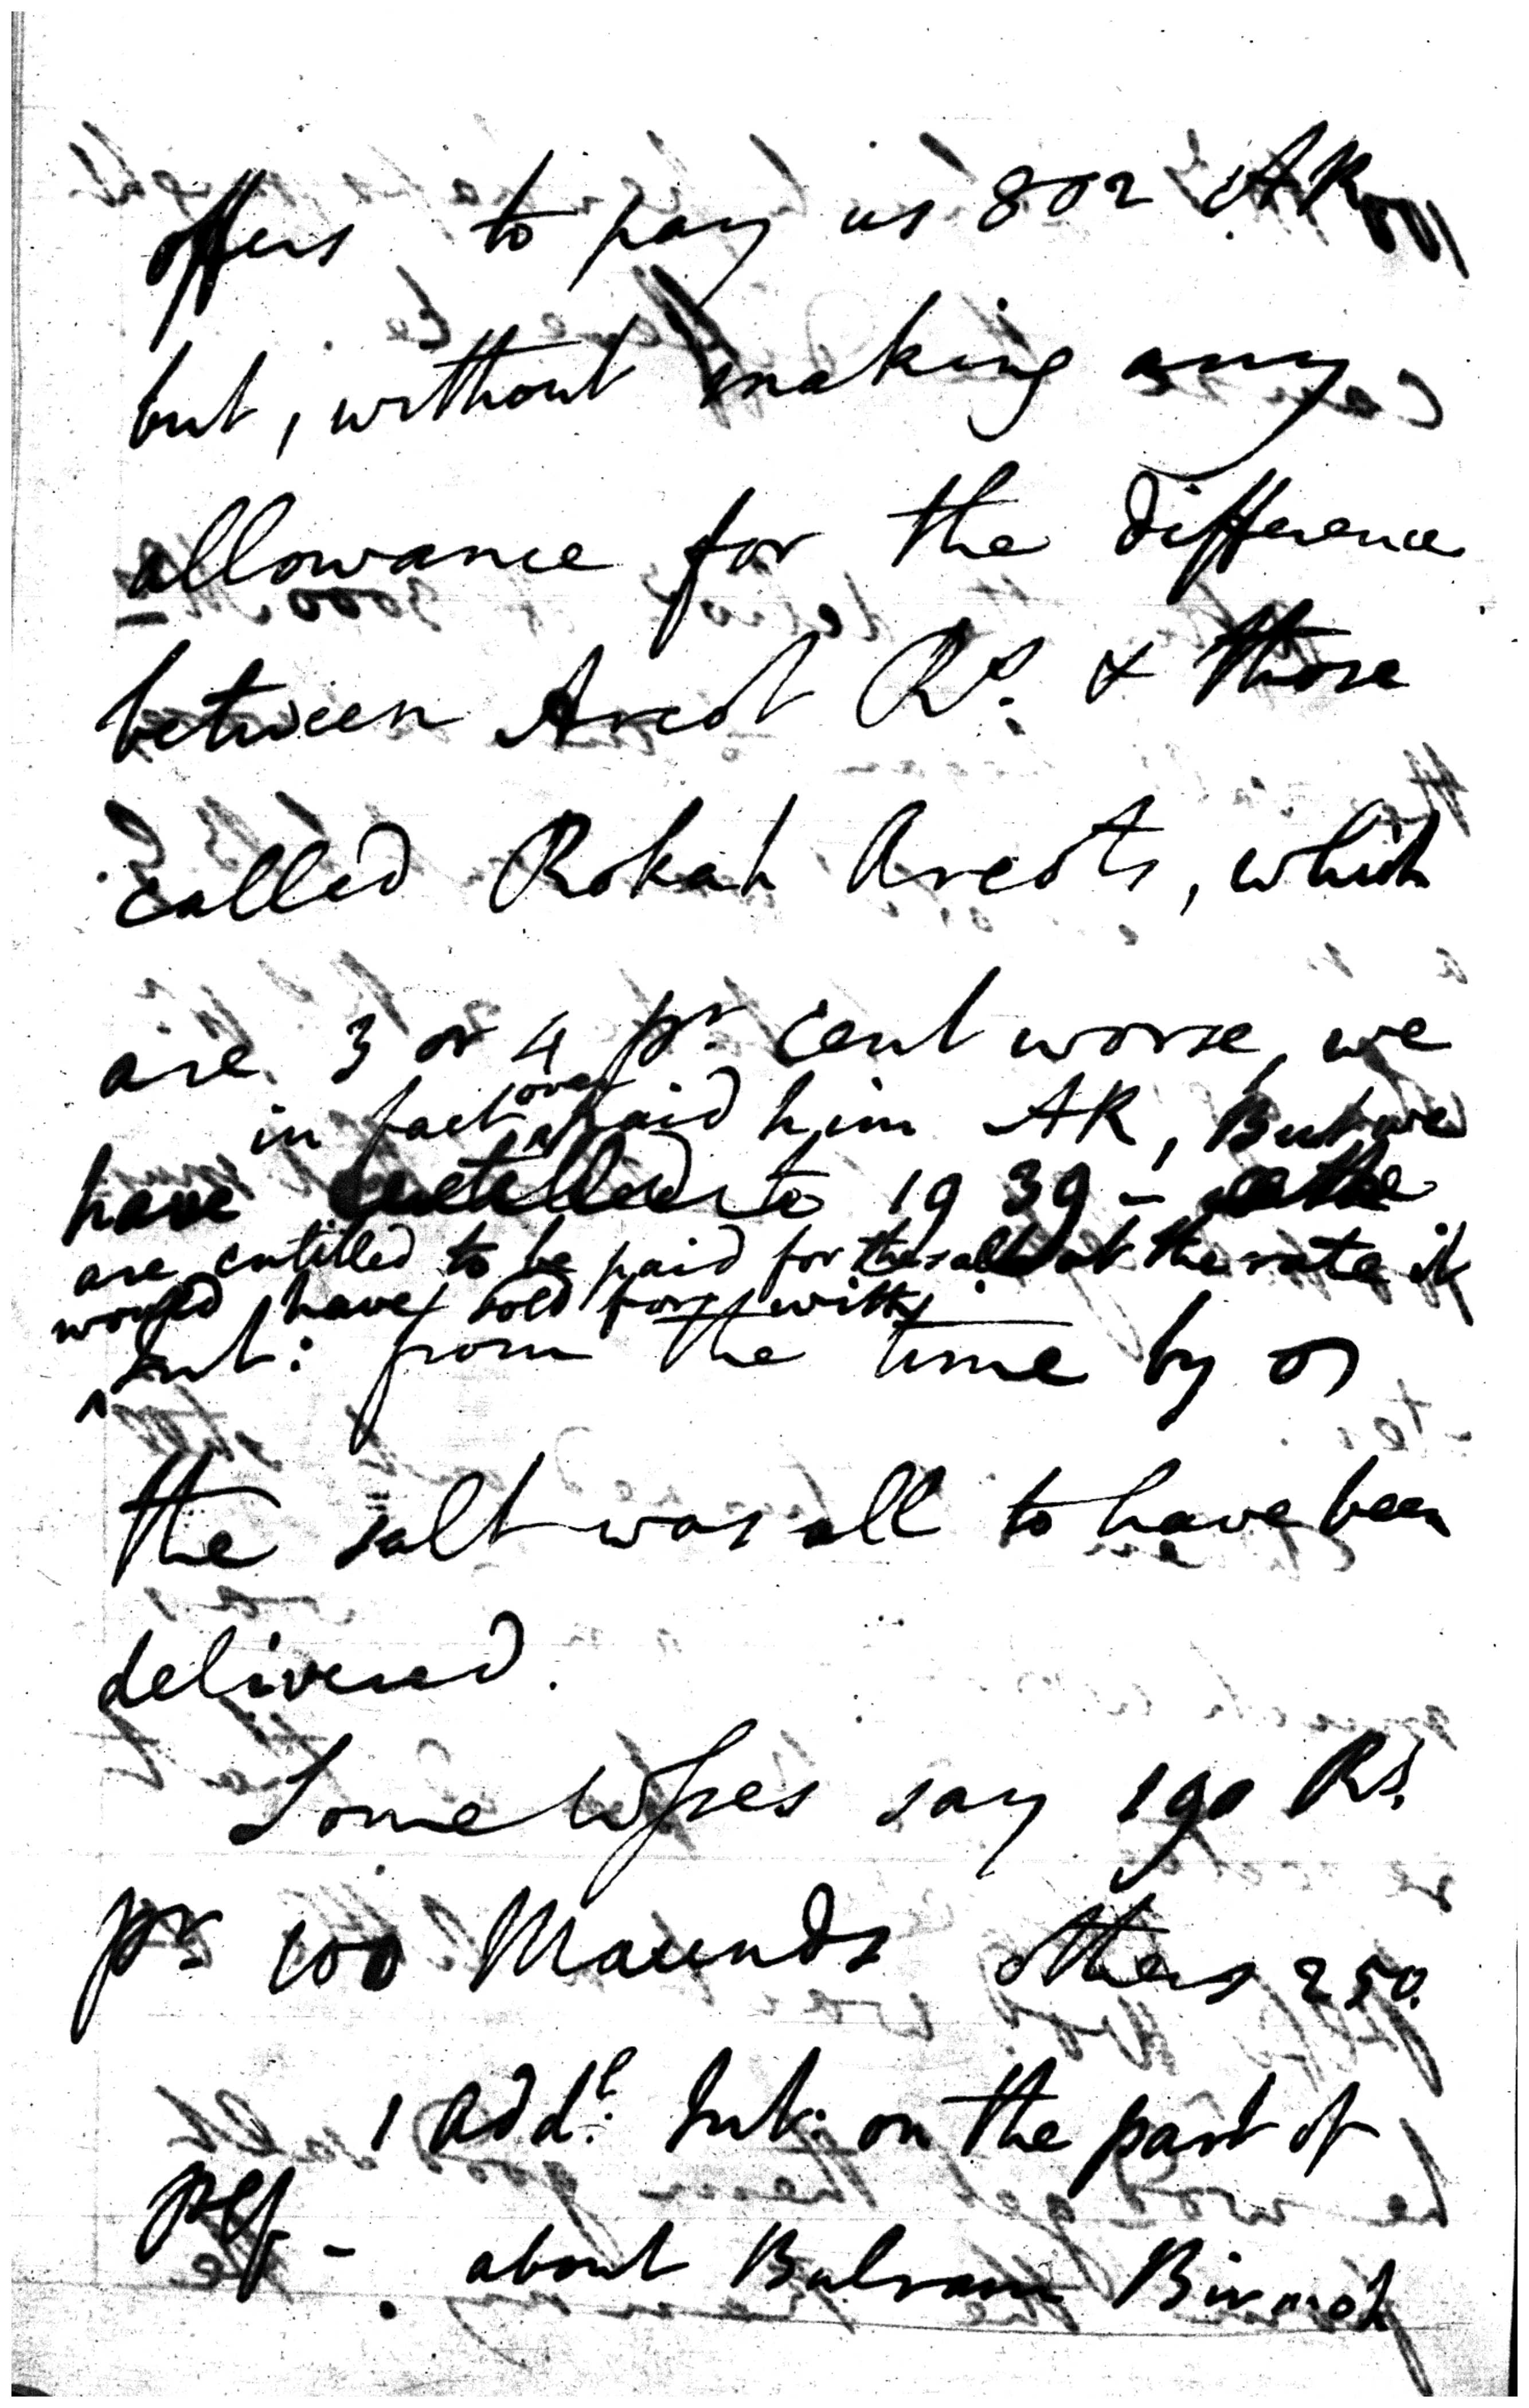 offers to pay us 802 AR
but, without making any
allowance for the difference
between Arcot Rs. & those
called Rokah Arcots, which
are 3 or 4 pr. cent worse, we
in fact over paid him AR, But we
have to 19 39 -
are entitled to be paid for the salt at the rate it
would have sold for with
Int: from the time by
the salt was all to have been
delivered.
Some Wsses say 190 Rs.
pr 100 Maunds others 250.
1 addl: Int: on the part of
Plf - . about Bulram